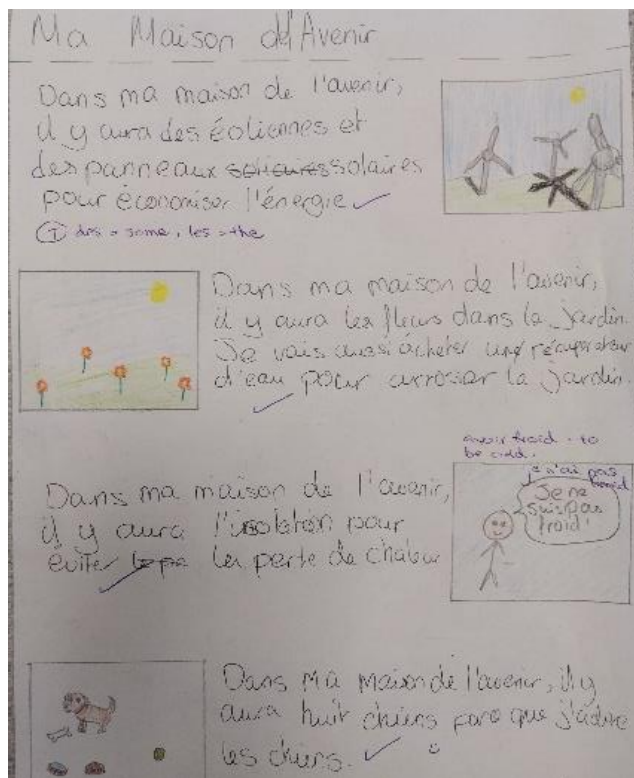 Ma Maison d'Avenir
Dans ma maison de l'avenir,
il y aura des éoliennes et
des panneaux solaires
pour économiser l'énergie
T des = some, les = the
Dans ma maison de l'avenir,
il y aura les fleurs dans la jardin.
Je vais aussi acheter une récuperateur
d'eau pour arrosser la jardin.
avoir froid - to
be cold.
je n'ai pas
froid
Je ne
suis pas
froid!
Dans ma maison de l'avenir,
il y aura l'isolation pour
éviter la perte de chaleur
Dans ma maison de l'avenir, il y
aura huit chiens parc que j'adore
les chiens.